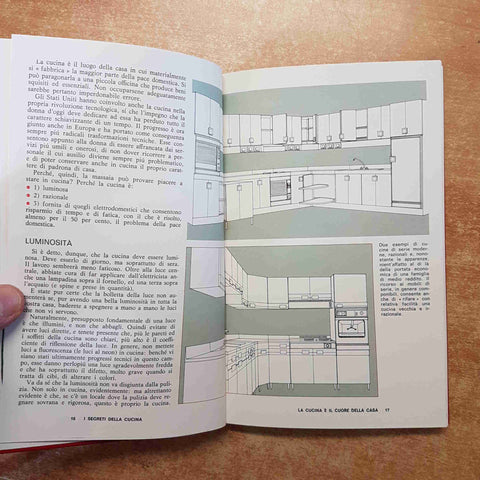 La cucina è il luogo della casa in cui materialmente
si « fabbrica » la maggior parte della pace domestica. Si
può paragonarla a una piccola officina che produce beni
squisiti ed essenziali. Non occuparsene adeguatamente
sarebbe pertanto imperdonabile errore.
Gli Stati Uniti hanno coinvolto anche la cucina nella
propria rivoluzione tecnologica, sì che l'impegno che la
donna d'oggi deve dedicare ad essa ha perduto tutto il
carattere schiavizzante di un tempo. Il progresso è ora
giunto anche in Europa e ha portato come conseguenza
sempre più radicali trasformazioni tecniche. Esse con-
sentono appunto alla donna di essere affrancata dai ser-
vizi più umili e onerosi, di non dover ricorrere a per-
sonale il cui ausilio diviene sempre più problematico,
e di poter conservare anche in cucina il proprio carat-
tere di padrona di casa.
Perché, quindi, la massaia può provare piacere a
stare in cucina? Perché la cucina è:
1) luminosa
2) razionale
3) fornita di quegli elettrodomestici che consentono
risparmio di tempo e di fatica, con il che è risolto,
almeno per il 50 per cento, il problema della pace
domestica.
LUMINOSITÀ
Si è detto, dunque, che la cucina deve essere lumi-
nosa. Deve esserlo di giorno, ma soprattutto di sera.
Il lavoro sembrerà meno faticoso. Oltre alla luce cen-
trale, abbiate cura di far applicare dall'elettricista an-
che una lampadina sopra il fornello, ed una terza sopra
l'acquaio (e spine e prese in quantità).
E state pur certe che la bolletta della luce non au-
menterà se, pur avendo una bella luminosità in tutta la
vostra casa, baderete a spegnere a mano a mano le luci
che non vi servono.
Naturalmente, presupposto fondamentale di una luce
è che illumini, e non che abbagli. Quindi evitate di
avere luci dirette; e tenete presente che, più le pareti ed
i soffitti della cucina sono chiari, più alto è il coeffi-
ciente di riflessione della luce. In genere, non mettete
luci a fluorescenza (le luci al neon) in cucina: benché vi
siano stati ultimamente progressi tecnici in questo cam-
po, esse danno perlopiù una luce sgradevolmente fredda
e che ha soprattutto il difetto, molto grave quando si
tratta di cibi, di alterare i colori.
Va da sé che la luminosità non va disgiunta dalla puli-
zia. Non solo in cucina, evidentemente: ma altrettanto
evidente è che, se c'è un locale dove la pulizia deve re-
gnare sovrana e rigorosa, questo è proprio la cucina.
16 I SEGRETI DELLA CUCINA
Due esempi di cu-
cine di serie moder-
ne, razionali e, nono-
stante le apparenze,
nient'affatto al di là
della portata econo-
mica di una famiglia
di medio reddito. Il
ricorso ai mobili di
serie, in genere com-
ponibili, consente an-
che di « rifare » con
relativa facilità una
cucina vecchia e ir-
razionale
LA CUCINA È IL CUORE DELLA CASA 17